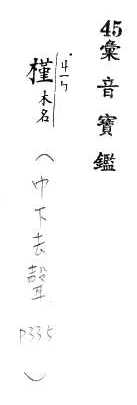 45彙音寶鑑
ㄐㄧㄣˋ
槿木名
（中下去聲
P335
）